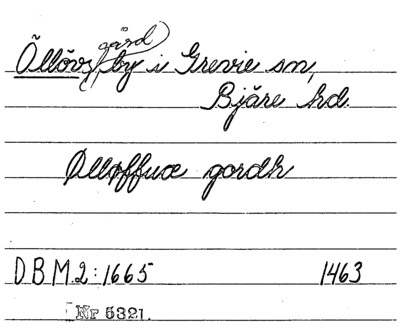 gård
Öllövs by i Grevie sn,
Bjäre hd.
Ølløffuæ gordh
DBM.2:1665 1463
Nr 5321.